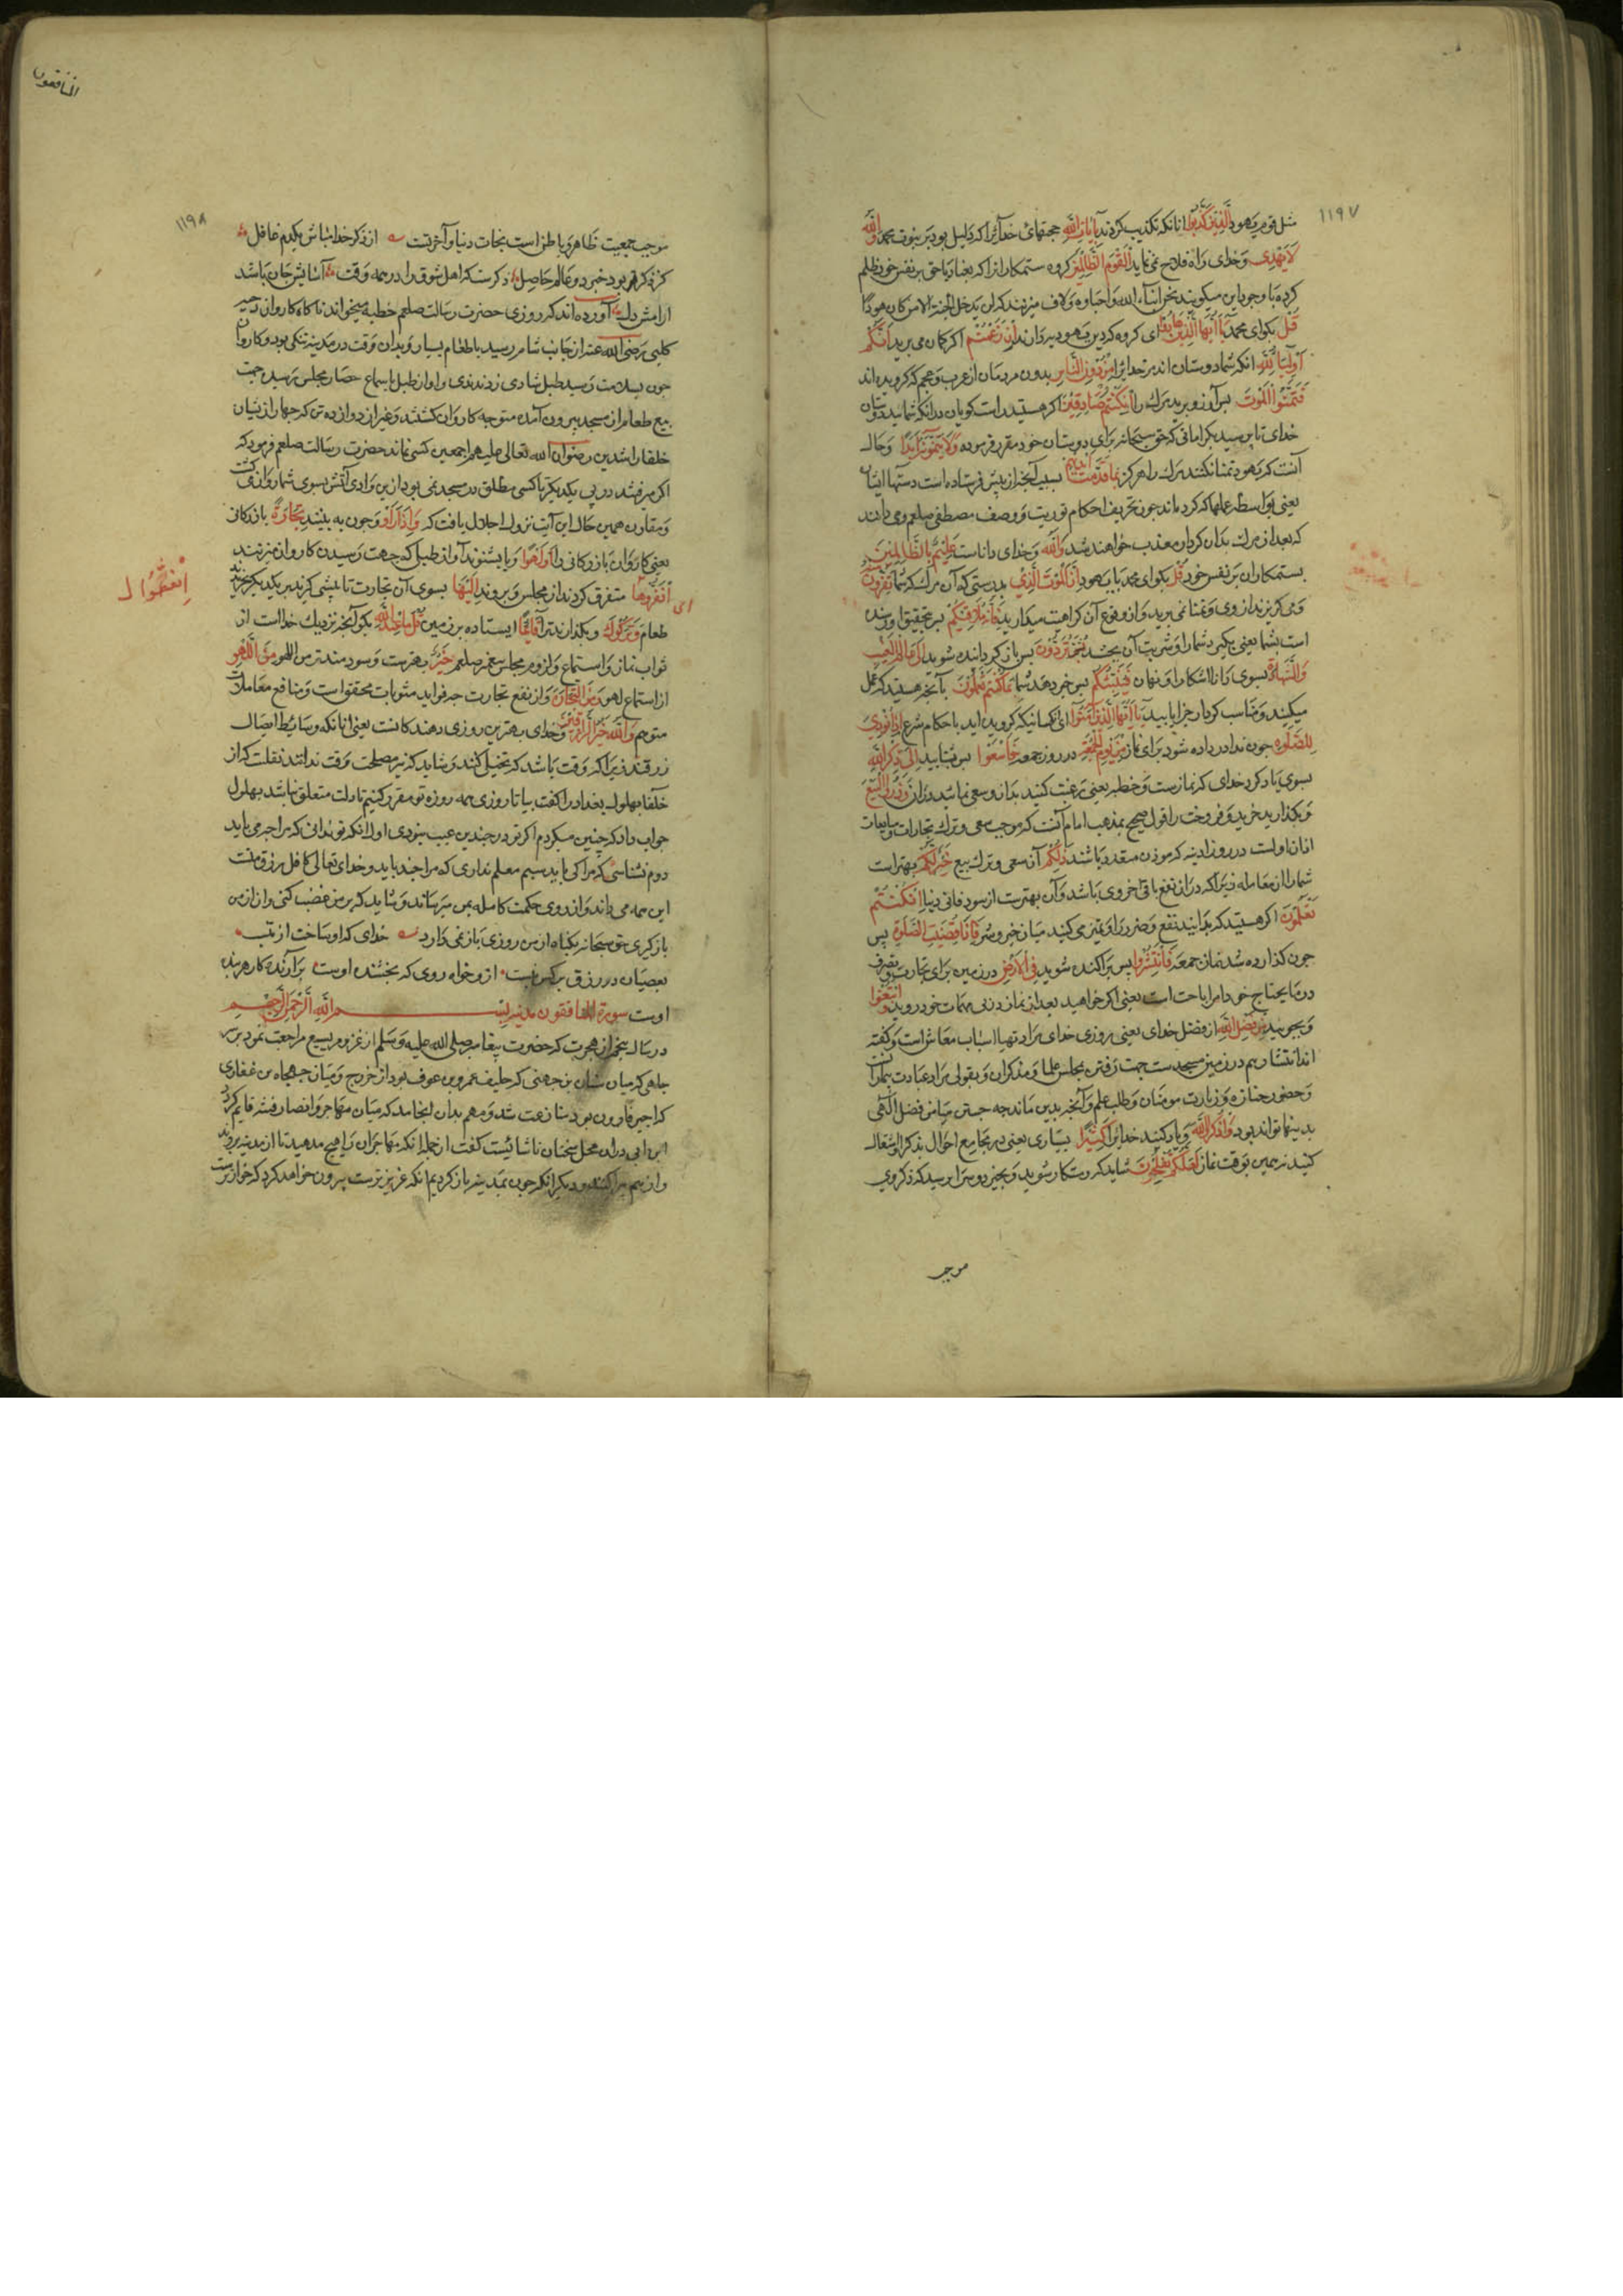 ١١٩٧
مثل قوم یهود الَّذِينَ كَذَّبُوا انانکه تکذیب کردند بِآيَاتِ اللَّهِ حجتهای خدایرا که دلیل بود بر نبوت محمد وَاللَّهُ
لَا يَهْدِي و خدای راه فلاح نمی نماید الْقَوْمَ الظَّالِمِينَ کروه ستمکارانرا که بعناد یا حق بر نفس خود ظلم
کرده با وجود این میکویند نحن ابناء الله و احباوه و لاف میزنند که لن یدخل الجنة الا من کان هودا
قُلْ بکو ای محمد يَا أَيُّهَا الَّذِينَ هَادُوا ای کروه که دین یهود دارند إِنْ زَعَمْتُمْ اکر کمان می برید أَنَّكُمْ
أَوْلِيَاءُ لِلَّهِ انکه شما دوستان اند بر خدایرا مِنْ دُونِ النَّاسِ بدون مردمان از عرب و عجم که کرویده اند
فَتَمَنَّوُا الْمَوْتَ پس آرزو برید مرک را إِنْ كُنْتُمْ صَادِقِينَ اکر هستید راست کویان در انکه شمایید دوستان
خدای تا برسید بکراماتی که حق سبحانه برای دوستان خود مقرر فرموده وَلَا يَتَمَنَّوْنَهُ أَبَدًا و حال
آنست که یهود تمنا نکنند مرک را هرکز بِمَا قَدَّمَتْ أَيْدِيهِمْ بسبب آنچه از پیش فرستاده است دستها ایشان
یعنی بواسطه عملها که کرده اند چون تحریف احکام توریت و وصف مصطفی صلعم و می دانند
که بعد از مرک بدان کردار معذب خواهند شد وَاللَّهُ و خدای داناست عَلِيمٌ بِالظَّالِمِينَ
بستمکاران بر نفس خود قُلْ بکو ای محمد با یهود إِنَّ الْمَوْتَ الَّذِي بدرستی که آن مرک که شما تَفِرُّونَ مِنْهُ
و می کریزند از وی و تمنا نمی برید و از وقوع آن کراهت میدارید فَإِنَّهُ مُلَاقِيكُمْ پس بتحقیق او رسنده
است بشما یعنی بکیرد شما را و شربت آن بچشید ثُمَّ تُرَدُّونَ پس باز کردانده شوید إِلَى عَالِمِ الْغَيْبِ
وَالشَّهَادَةِ بسوی دانا اشکارا و نهان فَيُنَبِّئُكُمْ پس خبر دهد شما بِمَا كُنْتُمْ تَعْمَلُونَ بآنچه هستید که عمل
میکنید و مناسب کردار جزا یابید يَا أَيُّهَا الَّذِينَ آمَنُوا ای کسانیکه کرویده اید باحکام شرع إِذَا نُودِيَ
لِلصَّلَاةِ چون ندا در داده شود برای نماز مِنْ يَوْمِ الْجُمُعَةِ در روز جمعه فَاسْعَوْا پس بشتابید إِلَى ذِكْرِ اللَّهِ
بسوی یاد کرد خدای که نماز ست و خطبه یعنی رغبت کنید بدان و سعی نمایید دران وَذَرُوا الْبَيْعَ
و بکذارید خرید و فروخت را قول صحیح بمذهب امام آنست که موجب سعی و ترک تجارات و مبایعات
اذان اولست در روز ادینه که موذن متعدد باشند ذَلِكُمْ آن سعی و ترک بیع خَيْرٌ لَكُمْ بهتر است
شما را از معامله زیرا که دران نفع باقی اخروی باشد و آن بهترست از سود فانی دنیا إِنْ كُنْتُمْ
تَعْلَمُونَ اکر هستید که بدانید نفع و ضرر را و تمیز می کنید میان خیر و شر فَإِذَا قُضِيَتِ الصَّلَاةُ پس
چون کذارده شد نماز جمعه فَانْتَشِرُوا پس پراکنده شوید فِي الْأَرْضِ در زمین برای تجارت و تصرف
در ما یحتاج خود امر اباحت است یعنی اکر خواهید بعد از نماز در پی مهمات خود روید وَابْتَغُوا
و بجویید مِنْ فَضْلِ اللَّهِ از فضل خدای یعنی روزی خدای مراد تهیا اسباب معاش است و کفته
اند انتشار هم در زمین مسجدست جهت رفتن بمجلس علما و مذکران و بقولی مراد عبادت بیمارانست
و حضور جنازه و زیارت مومنان و طلب علم و آنچه بدین ماند چه جستن میامن فضل الهی
بدینها تواند بود وَاذْكُرُوا اللَّهَ و یاد کنید خدایرا كَثِيرًا بسیاری یعنی در مجامع احوال بذکر او اشتغال
کنید نه همین بوقت نماز لَعَلَّكُمْ تُفْلِحُونَ شاید که رستکار شوید و بخیر دو سرا برسید که ذکر وی
موجب
المنافقون
١١٩٨
موجب جمعیت ظاهر و باطن است نجات دنیا و آخرتست از ذکر خدا مباش یکدم غافل
کز ذکر بود خیر دو عالم حاصل ذکرست که اهل شوق را در همه وقت آسایش جان باشد
ارامش دل آورده اند که روزی حضرت رسالت صلعم خطبه میخواند ناکاه کاروان دحیه
کلبی رضی الله عنه از جانب شام رسید با طعام بسیار و بدان وقت در مدینه تنکی بود و کاروان
چون بسلامت رسید طبل شادی زدندی و اواز طبل باسماع حضار مجلس رسید جهت
بیع طعام از مسجد بیرون آمده متوجه کاروان کشتند و غیر از دوازده تن که چهار از ایشان
خلفا راشدین رضوان الله تعالی علیهم اجمعین کسی نماند حضرت رسالت صلعم فرمود که
اکر میرفتند در پی یکدیکر تا کسی مطلق در مسجد نمی بود ازین وادی آتش بسوی شما روان می کشت
و مقارن همین حال این آیت نزول اجلال یافت که وَإِذَا رَأَوْا و چون به بینند تِجَارَةً بازرکانی
یعنی کاروان بازرکانی را أَوْ لَهْوًا و یا بشنوند آواز طبل که جهت رسیدن کاروان میزنند
انْفَضُّوا
انْفَرُّوا متفرق کردند از مجلس و بروند إِلَيْهَا بسوی آن تجارت تا پیشی کیرند بر یکدیکر بخرید
طعام وَتَرَكُوكَ و بکذارند ترا قَائِمًا ایستاده بر زمین قُلْ مَا عِنْدَ اللَّهِ بکو آنچه نزدیک خدا است از
ثواب نماز و استماع و لزوم مجلس پیغمبر صلعم خَيْرٌ بهترست و سودمندتر من اللهو مِنَ اللَّهْوِ
از استماع لهو وَمِنَ التِّجَارَةِ و از نفع تجارت چه فواید مثوبات محقق است و منافع معاملات
متوهم وَاللَّهُ خَيْرُ الرَّازِقِينَ و خدای بهترین روزی دهندکانست یعنی انانکه وسایط ایصال
رزقند زیرا که وقت باشد که بخیلی کنند و شاید که نیز مصلحت وقت ندانند نقلست که از
خلفا بهلول بغداد را کفت بیا تا روزی همه روزه تو مقرر کنیم تا دلت متعلق نباشد بهلول
جواب داد که چنین میکردم اکر تو در چندین عیب نبودی اول انکه تو ندانی که مرا چه می باید
دوم نشناسی که مرا کی باید سیم معلم نداری که مرا چند باید و خدای تعالی کافل رزق منست
این همه می داند و از روی حکمت کامله بمن میرساند و شاید که بر من غضب کنی و از من
باز کیری حق سبحانه بکناه از من روزی باز نمی دارد خدای که او ساخت از
بعصیان در رزق بر کس نبست ازو خواه روی که بخشنده اوست برآرنده کار هر بنده
اوست سورة المنافقون مدنیه بسم الله الرحمن الرحیم
در سال پنجم از هجرت که حضرت پیغامبر صلی الله علیه و سلم از غزو مریسیع مراجعت نمود بر سر
چاهی که میان سنان بن جهنی که حلیف عمرو بن عوف بود از خزرج و میان جهجاه بن غفاری
که اجیر فاروق بود منازعت شد و مهم بدان انجامید که میان مهاجر و انصار فتنه قایم کردد
ابن ابی دران محل سخنان ناشایست کفت از جمله انکه مهاجران را هیچ مدهید تا از مدینه بروند
و از هم پراکنند و دیکر انکه چون بمدینه باز کردیم انکه عزیزترست بیرون خواهد کرد که خوارترست